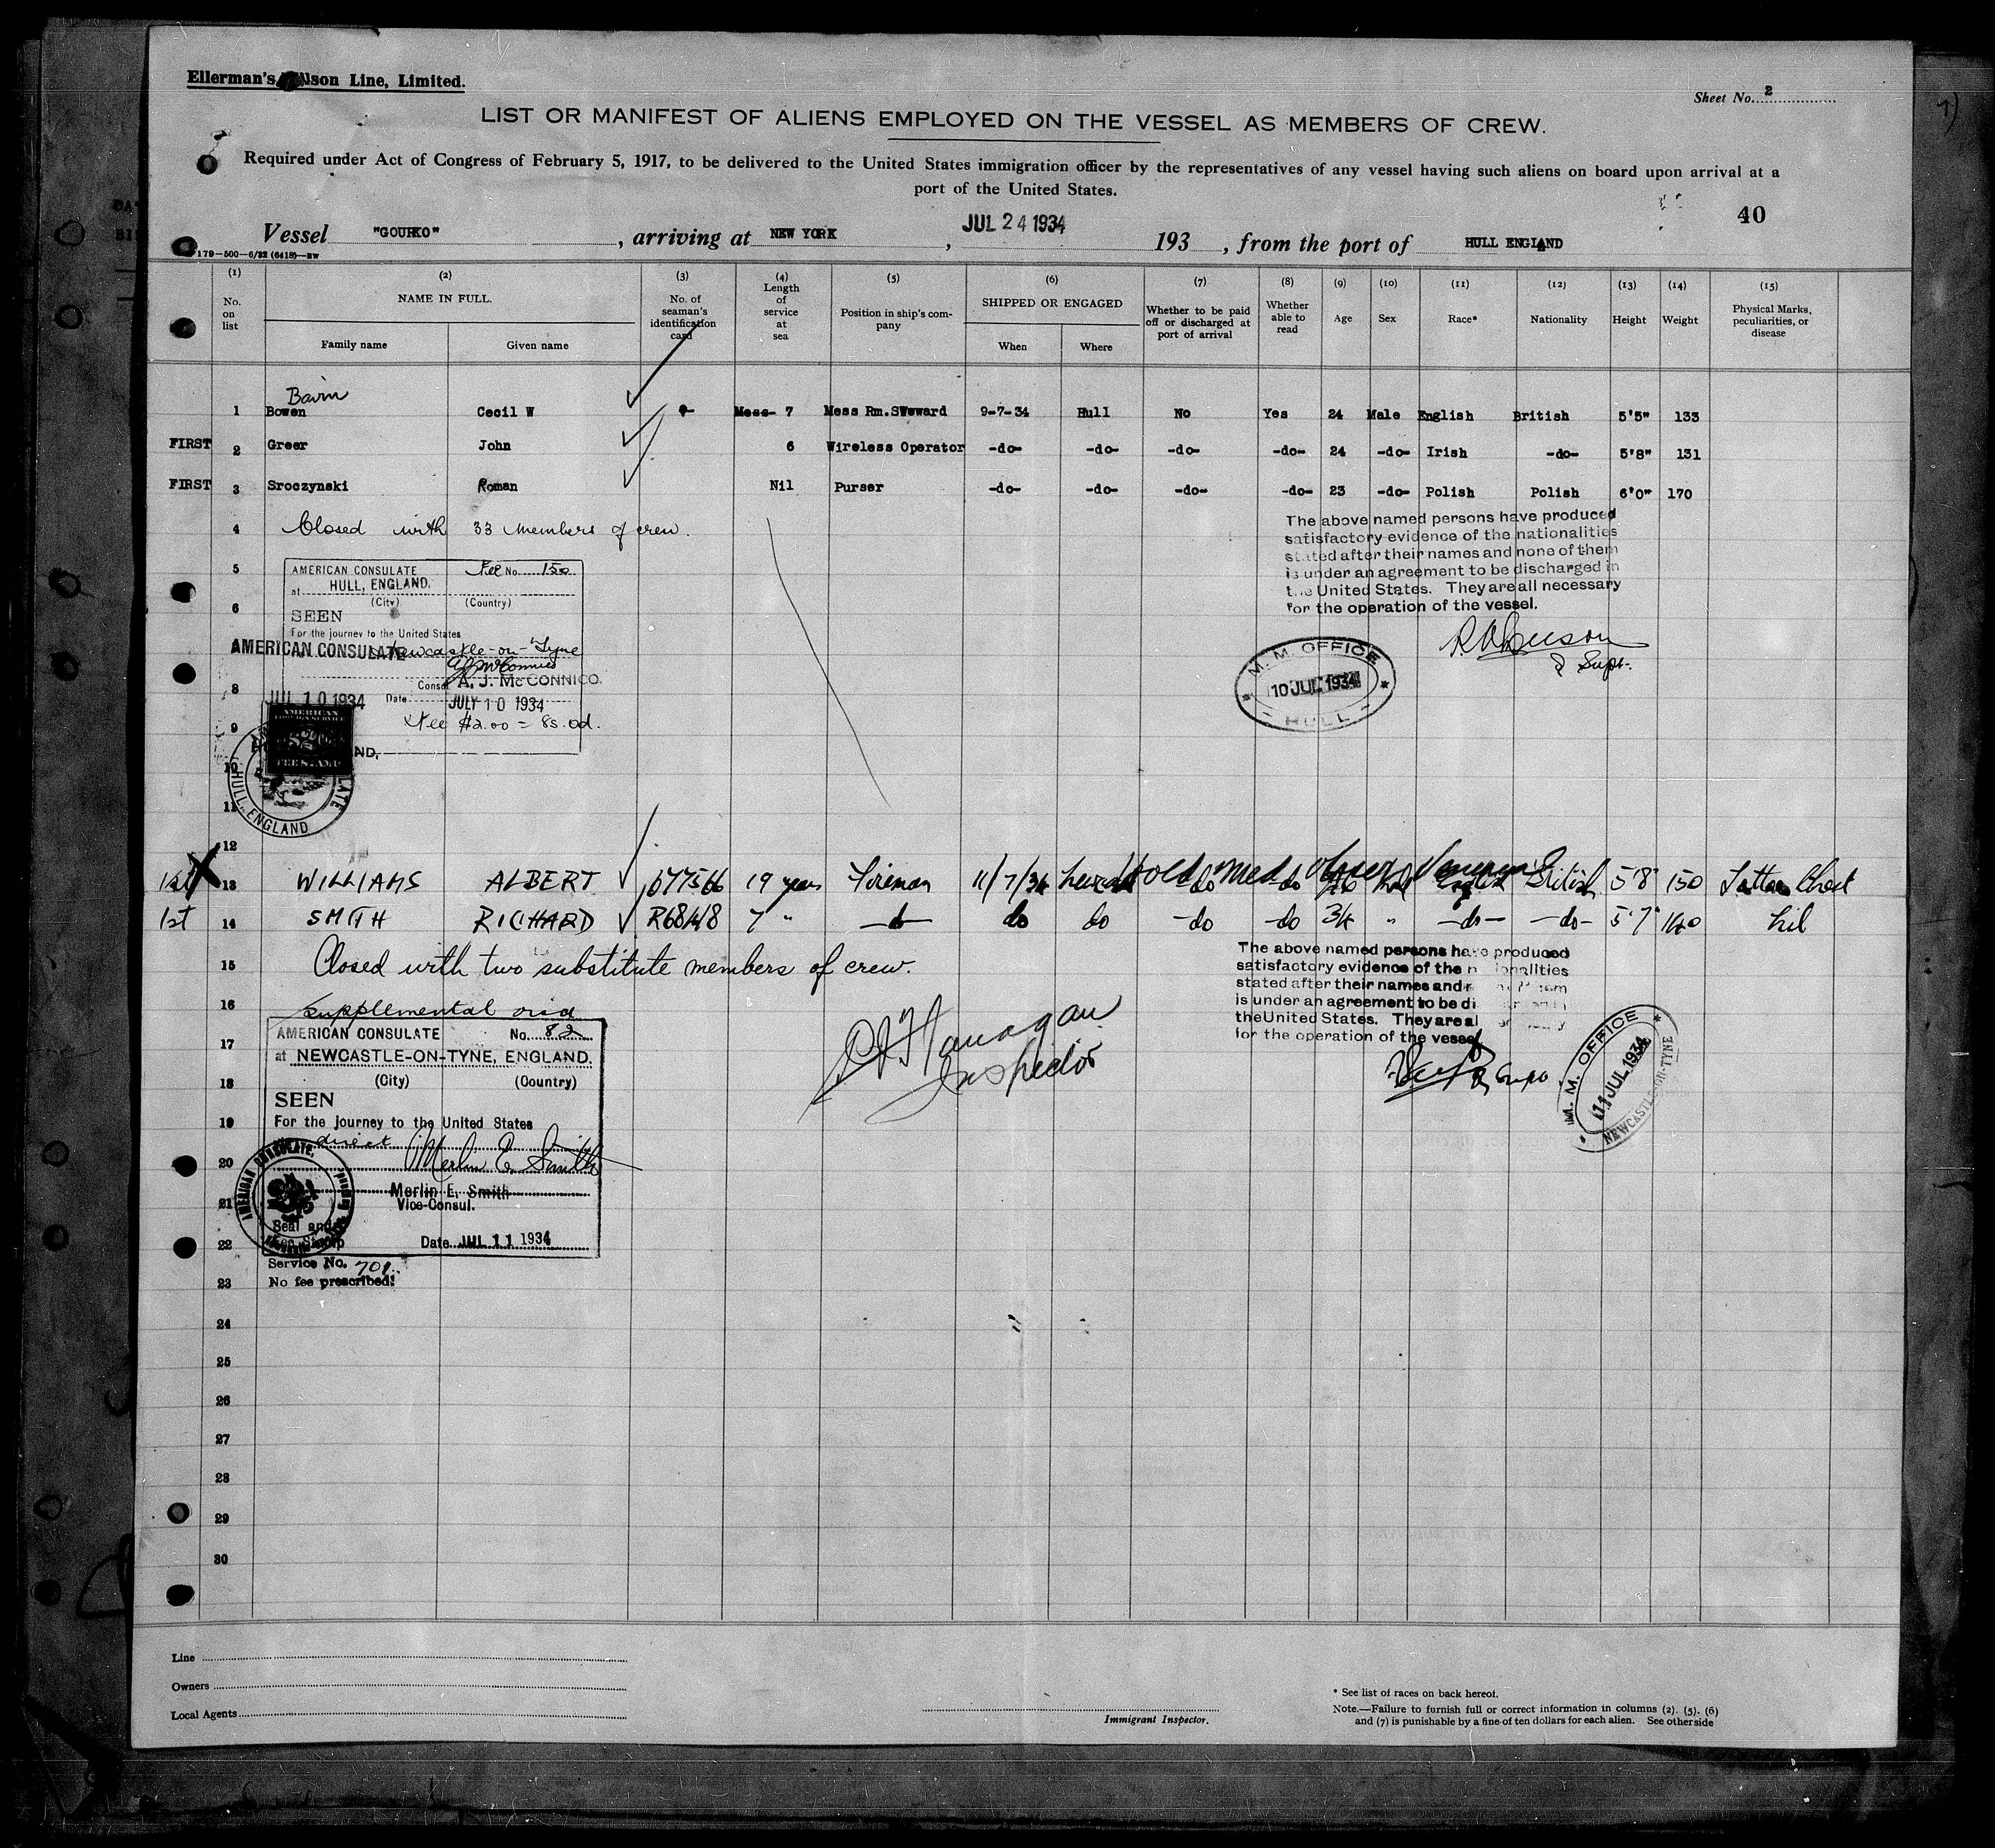 Ellerman's Wilson Line, Limited.
Sheet No. 2
LIST OR MANIFEST OF ALIENS EMPLOYED ON THE VESSEL AS MEMBERS OF CREW.
Required under Act of Congress of February 5, 1917, to be delivered to the United States immigration officer by the representatives of any vessel having such aliens on board upon arrival at a
port of the United States.
40
Vessel "GOURKO", arriving at NEW YORK, JUL 24 1934 193 , from the port of HULL ENGLAND
179-500-6/32 (6418)-EW
(1) (2) (3) (4) (5) (6) (7) (8) (9) (10) (11) (12) (13) (14) (15)
No. on list NAME IN FULL. Family name Given name No. of seaman's identification card Length of service at sea Position in ship's company SHIPPED OR ENGAGED When Where Whether to be paid off or discharged at port of arrival Whether able to read Age Sex Race* Nationality Height Weight Physical Marks, peculiarities, or disease
Bavin
1 Bowen Cecil W 7 Mess Rm.Steward 9-7-34 Hull No Yes 24 Male English British 5'5" 133
FIRST 2 Greer John 6 Wireless Operator -do- -do- -do- -do- 24 -do- Irish -do- 5'8" 131
FIRST 3 Sroczynski Roman Nil Purser -do- -do- -do- -do- 23 -do- Polish Polish 6'0" 170
4 Closed with 33 members of crew.
The above named persons have produced
satisfactory evidence of the nationalities
stated after their names and none of them
is under an agreement to be discharged in
the United States. They are all necessary
for the operation of the vessel.
Supt.
M. M. OFFICE
10 JUL 1934
HULL
5 AMERICAN CONSULATE Fee No. 150
at HULL, ENGLAND.
(City) (Country)
6 SEEN
For the journey to the United States
AMERICAN CONSULATE
Newcastle-on-Tyne
Consul A. J. McCONNICO.
8 JUL 10 1934 Date JULY 10 1934
Fee $2.00 = 8s.0d.
9
AMERICAN
FOREIGN SERVICE
$2
FEE STAMP
10
HULL, ENGLAND
11
12
1st X 13 WILLIAMS ALBERT 577566 19 years Fireman 11/7/34 do do English British 5'8" 150 Tattoo Chest
1st 14 SMITH RICHARD R68148 7 " do do do do do 34 " do do 5'7" 140 Nil
15 Closed with two substitute members of crew.
The above named persons have produced
satisfactory evidence of the nationalities
stated after their names and
is under an agreement to be
the United States. They are al
for the operation of the vessel
M. M. OFFICE
11 JUL 1934
NEWCASTLE-ON-TYNE
Flanagan
Inspector
16 Supplemental visa
AMERICAN CONSULATE No. 82
17 at NEWCASTLE-ON-TYNE, ENGLAND.
(City) (Country)
18 SEEN
19 For the journey to the United States
direct
20 Merlin E. Smith
AMERICAN CONSULATE
21 Merlin E. Smith
Vice-Consul.
Seal and
Fee Stamp
22 Date JUL 11 1934
Service No. 701.
23 No fee prescribed.
24
25
26
27
28
29
30
Line
Owners
Local Agents
Immigrant Inspector.
* See list of races on back hereof.
Note.—Failure to furnish full or correct information in columns (2). (5). (6)
and (7) is punishable by a fine of ten dollars for each alien. See other side